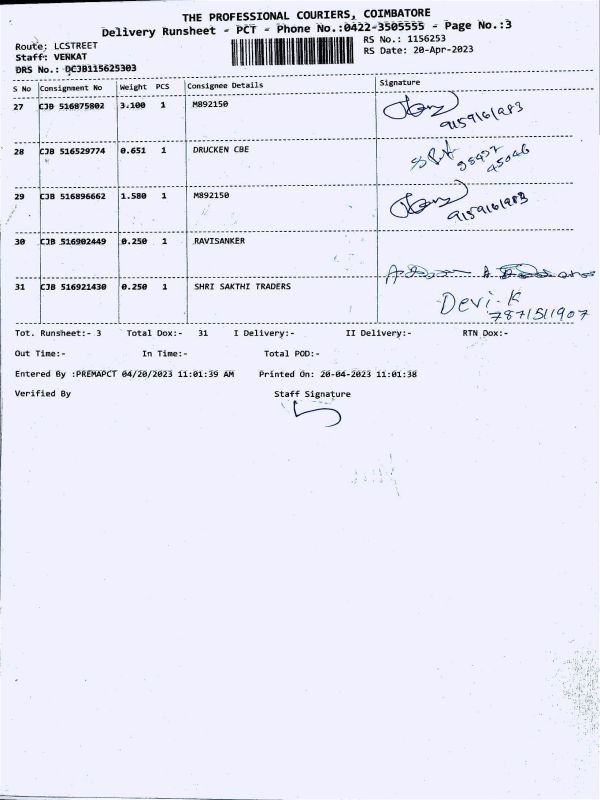 THE PROFESSIONAL COURIERS, COIMBATORE
Delivery Runsheet - PCT - Phone No.:0422-3505555 - Page No.:3
Route: LCSTREET
RS No.: 1156253
Staff: VENKAT
RS Date: 20-Apr-2023
DRS No.: DCJB115625303
S No Consignment No Weight PCS Consignee Details Signature
27 CJB 516875802 3.100 1 M892150
9159161983
28 CJB 516529774 0.651 1 DRUCKEN CBE
29 CJB 516896662 1.580 1 M892150
9159161983
30 CJB 516902449 0.250 1 RAVISANKER
31 CJB 516921430 0.250 1 SHRI SAKTHI TRADERS
Devi.K
7871511907
Tot. Runsheet:- 3 Total Dox:- 31 I Delivery:- II Delivery:- RTN Dox:-
Out Time:- In Time:- Total POD:-
Entered By :PREMAPCT 04/20/2023 11:01:39 AM Printed On: 20-04-2023 11:01:38
Verified By Staff Signature